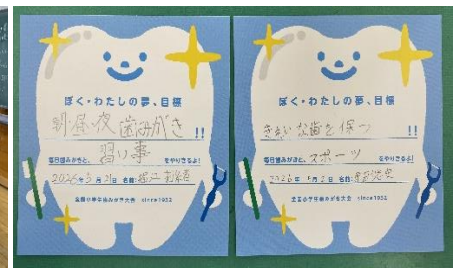 ぼく・わたしの夢、目標
朝・昼・夜 歯みがき !!
毎日歯みがきと、習い事をやりきるよ!
2026年3月2日 名前:
全国小学生歯みがき大会 since1952
ぼく・わたしの夢、目標
きれいな歯を保つ !!
毎日歯みがきと、スポーツをやりきるよ!
2026年 月2日 名前:
全国小学生歯みがき大会 since1952